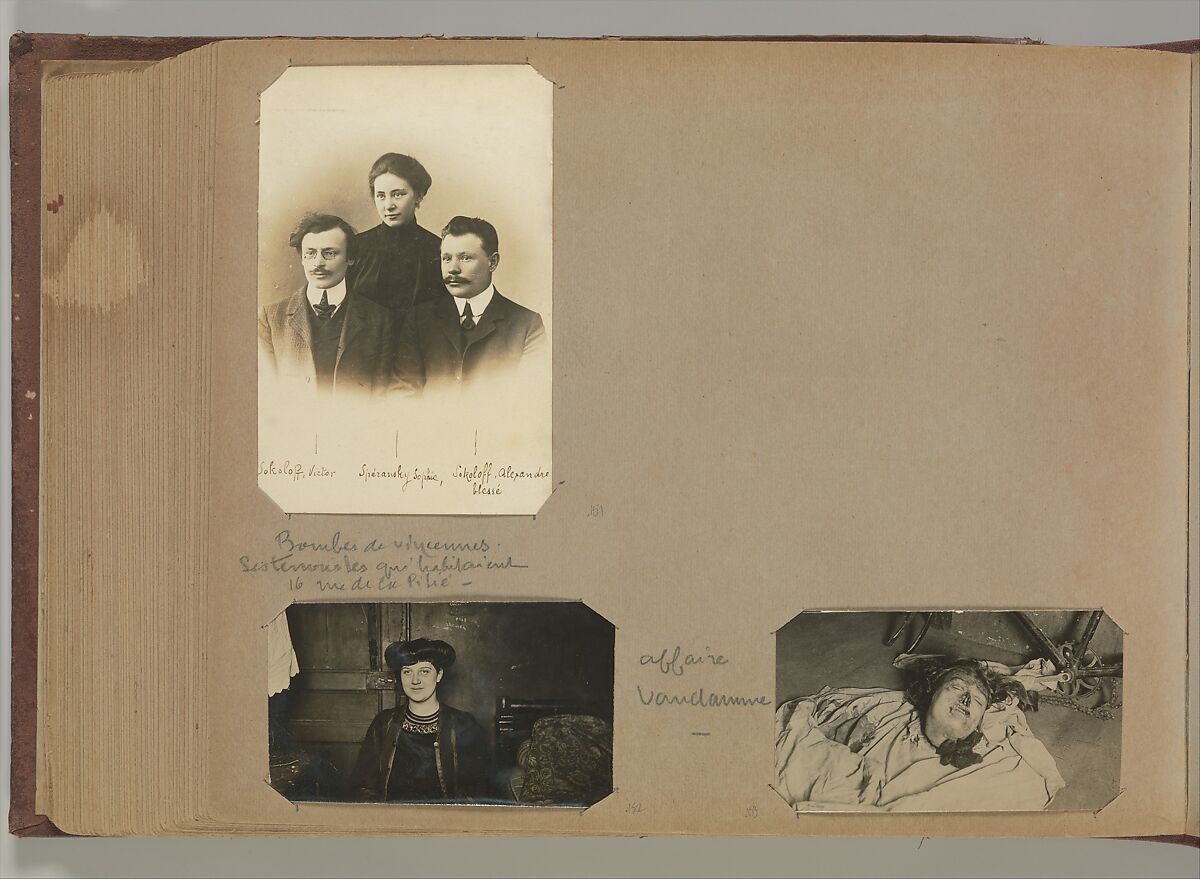 Sokoloff, Victor
Spéransky Sophie,
Sokoloff, Alexandre
blessé
151
Bombes de Vincennes.
qui habitaient
16 rue de la Pitié -
affaire
Vandamme
152